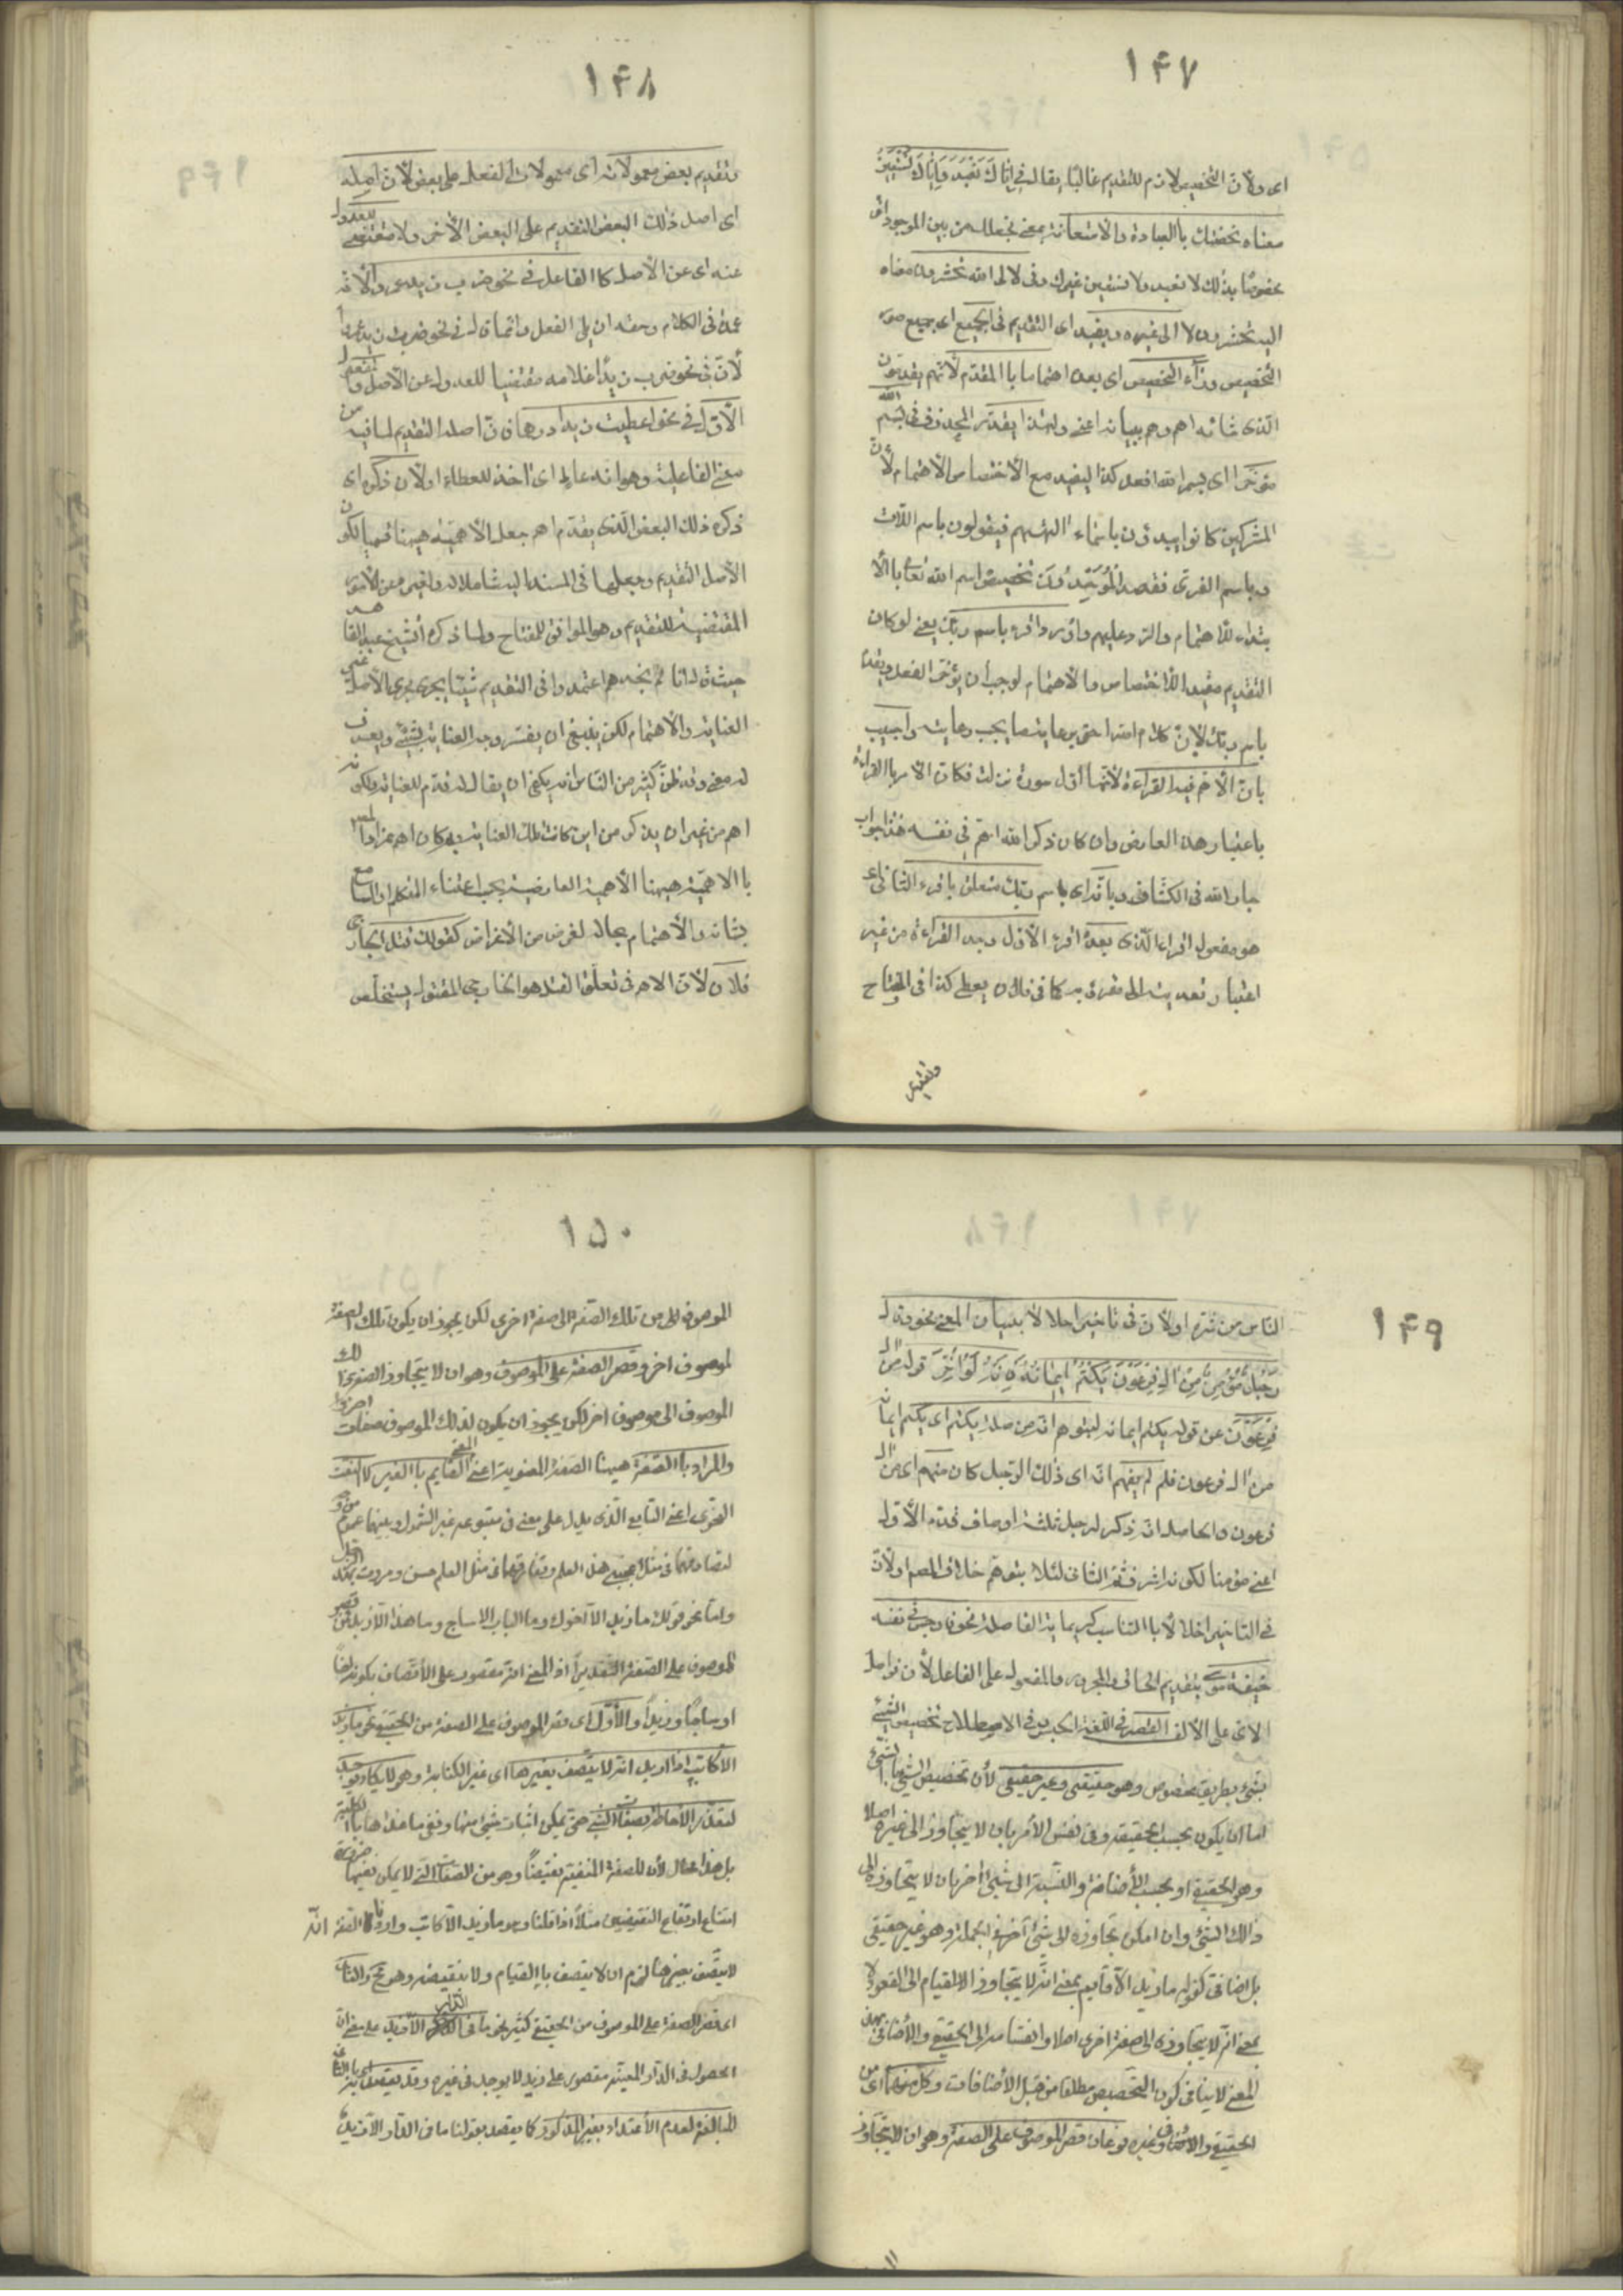 ۱۴۷
اى ولانّ التخصيص لازم للتقديم غالبًا يقال فى اِيّاكَ نَعْبُدُ وَاِيّاكَ نَسْتَعِينُ
معناه نخصّك باالعبادة والاستعانة بمعنى نجعلك من بين الموجودات
مخصوصًا بذلك لا نعبد ولا نستعين غيرك وفى لالى الله تحشرون معناه
اليه تحشرون لا الى غيره ويفيد اى التقديم فى الجميع اى جميع صور
التخصيص ورآء التخصيص اى بعده اهتماما باالمقدّم لانّهم يقدّمون
الّذى شانه اهم وهم ببيانه اعنى ولهذا يقدّر المحذوف فى بسم الله
مؤخّرا اى بسم الله افعل كذا ليفيد مع الاختصاص الاهتمام لانّ
المشركين كانوا يبدؤن باسماء الهتهم فيقولون باسم اللّات
وباسم العزى فقصد الموحّد تخصيص اسم الله تعالى باالا
بتداء للاهتمام والرد عليهم واورد اقرء باسم ربّك يعنى لو كان
التقديم مفيد اللاختصاص والاهتمام لوجب ان يؤخّر الفعل ويقدّم
باسم ربّك لانّ كلام الله احق برعاية ما يجب رعايته واجيب
بانّ الاهم فيه القراءة لانّها اوّل سورة نزلت فكان الامر باالقراءة
باعتبار هذا العارض وان كان ذكر الله اهم فى نفسه هذا جواب
جار الله فى الكشّاف وبانّه اى باسم ربّك متعلق باقرء الثانى اى
هو مفعول اقرء الّذى بعده اقرء الاوّل اوجد القراءة من غير
اعتبار تعديته الى مقروّ به كما فى فلان يعطى كذا فى المفتاح
وتقديم
۱۴۸
وتقديم بعض معمولاته اى معمولات الفعل على بعض لانّ اصله
اى اصل ذلك البعض التقديم على البعض الاخر ولا مقتضى للعدول
عنه اى عن الاصل كاالفاعل فى نحو ضرب زيد عمروا لانّه
عمدة فى الكلام وحقه ان يلى الفعل وانّما قال فى نحو ضرب زيد عمروا
لانّ فى نحو ضرب زيدًا غلامه مقتضيا للعدول عن الاصل والمفعول
الاوّل فى نحو اعطيت زيدا درهما فانّ اصله التقديم لما فيه من
معنى الفاعلية وهو انه عاط اى اخذ للعطاء اولانّ ذكره اى
ذكره ذلك البعض الّذى يقدّم اهم جعل الاهميّة هيهنا قسيما لكون
الاصل التقديم وجعلها فى المسند اليه شاملا له ولغيره من الامور
المقتضية للتقديم وهو الموافق للمفتاح ولما ذكره الشيخ عبد القاهر
حيث قال انا لم نجدهم اعتمدوا فى التقديم شيئا يجرى مجرى الاصل غير
العناية والاهتمام لكن ينبغى ان يفسّر وجه العناية بشيئ ويعرف
له معنى وقد ظنّ كثير من النّاس انه يكفى ان يقال انه قدّم للعناية ولكونه
اهم من غير ان يذكر من اين كانت تلك العناية وبم كان اهم فمراد المص
باالاهميّة هيهنا الاهمية العارضية بحسب اعتناء المتكلم او السامع
بشانه والاهتمام بحاله لغرض من الاغراض كقولك قتل الخارجى
فلان لانّ الاهم فى تعلّق القتل هو الخارجى المقتول ليتخلّص
۱۴۹
النّاس من شرّه اولانّ فى تاخيره اخلالا ببيان المعنى نحو وقال
رَجُلٌ مُؤْمِنٌ مِنْ الِ فِرْعَوْنَ يَكْتُمُ اِيمانَهُ فانه لو اُخّر قوله من ال
فِرْعَوْنَ عن قوله يكتم ايمانه لتوهم انّه من صلة يكتم اى يكتم ايمانه
من ال فرعون فلم يفهم انّه اى ذلك الرّجل كان منهم اى من ال
فرعون والحاصل انّه ذكر لرجل ثلثة اوصاف قدّم الاوّل
اعنى مؤمنا لكونه اشرف ثمّ الثانى لئلا يتوهّم خلاف المقصم اولانّ
فى التاخير اخلالا باالتناسب كرعاية الفاصلة نحو فاوجس فى نفسه
خيفة موسى بتقديم الحال والمجرور والمفعول على الفاعل لانّ فواصل
الاى على الالف القصر فى اللّغة الحبس وفى الاصطلاح تخصيص الشيئ
بشيئ بطريق مخصوص وهو حقيقى وغير حقيقى لأن تخصيص الشيئ باالشيئ
اما ان يكون بحسب الحقيقة وفى نفس الأمر بان لا يتجاوز الى غيره اصلا
وهو الحقيقى او بحسب الأضافة والنّسبة الى شيئ اخر بان لا يتجاوزه الى
ذالك الشيئ وان امكن تجاوزه الى شيئ آخر فى الجملة وهو غير حقيقى
بل اضافى كقولك ما زيد الاّ قايم بمعنى انّه لا يتجاوز القيام الى القعود لا
بمعنى انّه لا يتجاوزه الى صفة اخرى اصلا وانقسامه الى الحقيقى والأضافى بهذا
المعنى لا ينافى كون التخصيص مطلقا من قبيل الأضافات وكل منهما اى من
الحقيقى والأضافى وغيره نوعان قصر الموصوف على الصفة وهو ان لا يتجاوز
۱۵۰
الموصوف من تلك الصّفة الى صفة اخرى لكن يجوز ان يكون تلك الصفة
لموصوف اخر وقصر الصفة على الموصوف وهو ان لا يتجاوز الصفة ذلك
الموصوف الى موصوف اخر لكن يجوز ان يكون لذلك الموصوف صفات اخرى
والمراد باالصّفة هيهنا الصفة المعنوية اعنى المعنى القايم باالغير لا النعت
النحوى اعنى التابع الّذى يدلّ على معنى فى متبوعه غير الشمول وبينهما عموم من وجه
لتصادقهما فى مثل اعجبنى هذا العلم وتفارقهما فى مثل العلم حسن ومررت بهذا الرّجل
وامّا نحو قولك ما زيد الا اخوك وما الباب الا ساج وما هذا الاّ زيد فمن قصر
الموصوف على الصفة تقديرا اذ المعنى انّه مقصور على الأتّصاف بكونه اخًا
او ساجًا او زيدًا والأوّل اى قصر الموصوف على الصفة من الحقيقى نحو ما زيد
الاّ كاتب اذا اريد انّه لا يتّصف بغيرها اى غير الكتابة وهو لا يكاد يوجد
لتعذّر الأحاطة بصفات الشيئ حتى يمكن اثبات شيئ منها ونفى ما عداها باالكلّية
بل هذا محال لأن للصفة المنفية نقيضاً وهو من الصفات الّتى لا يمكن نفيها ضرورة
امتناع ارتفاع النقيضين مثلاً اذا قلنا ما زيد الاّ كاتب واردنا انّه
لا يتّصف بغيره لزم ان لا يتصف باالقيام ولا بنقيضه وهو مح والثانى
اى قصر الصفة على الموصوف من الحقيقى كثير نحو ما فى الدّار الاّ زيد على معنى انّ
الحصول فى الدّار المعيّنة مقصور على زيد لا يوجد فى غيره وقد يقصد به اى باالثانى
المبالغة لعدم الأعتداد بغير المذكور كما يقصد بقولنا ما فى الدّار الاّ زيد